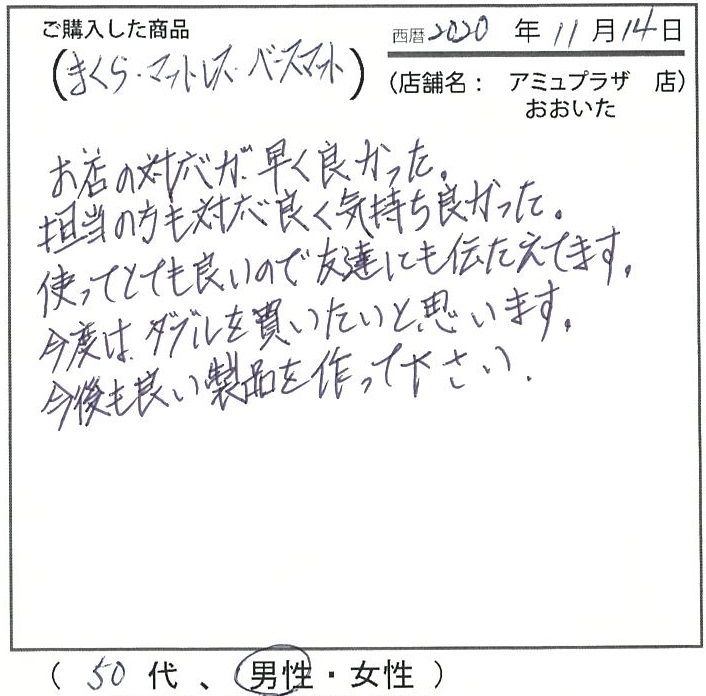 ご購入した商品
(まくら・マットレス・ベースマット)
西暦2020 年 11 月 14 日
(店舗名： アミュプラザ 店)
おおいた
お店の対応が早く良かった。
担当の方も対応良く気持ち良かった。
使ってとても良いので友達にも伝たえてます。
今度はダブルを買いたいと思います。
今後も良い製品を作って下さい.
( 50 代 、 男性・女性 )